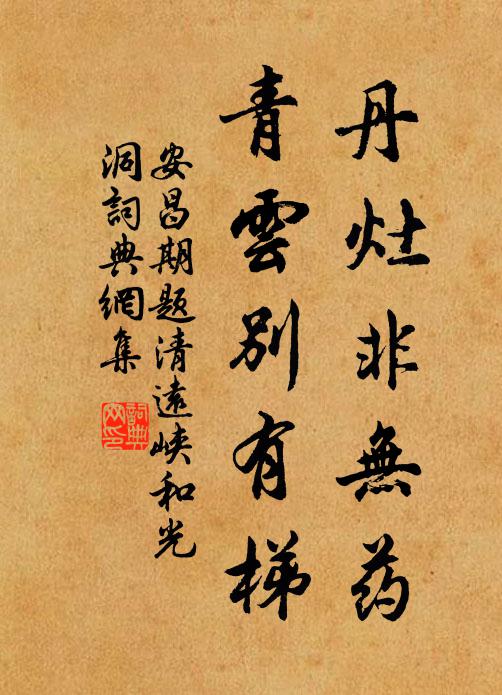 丹灶非無药
青雲別有梯
安昌期題清遠峽和光
洞詞典網集
詞典
网印